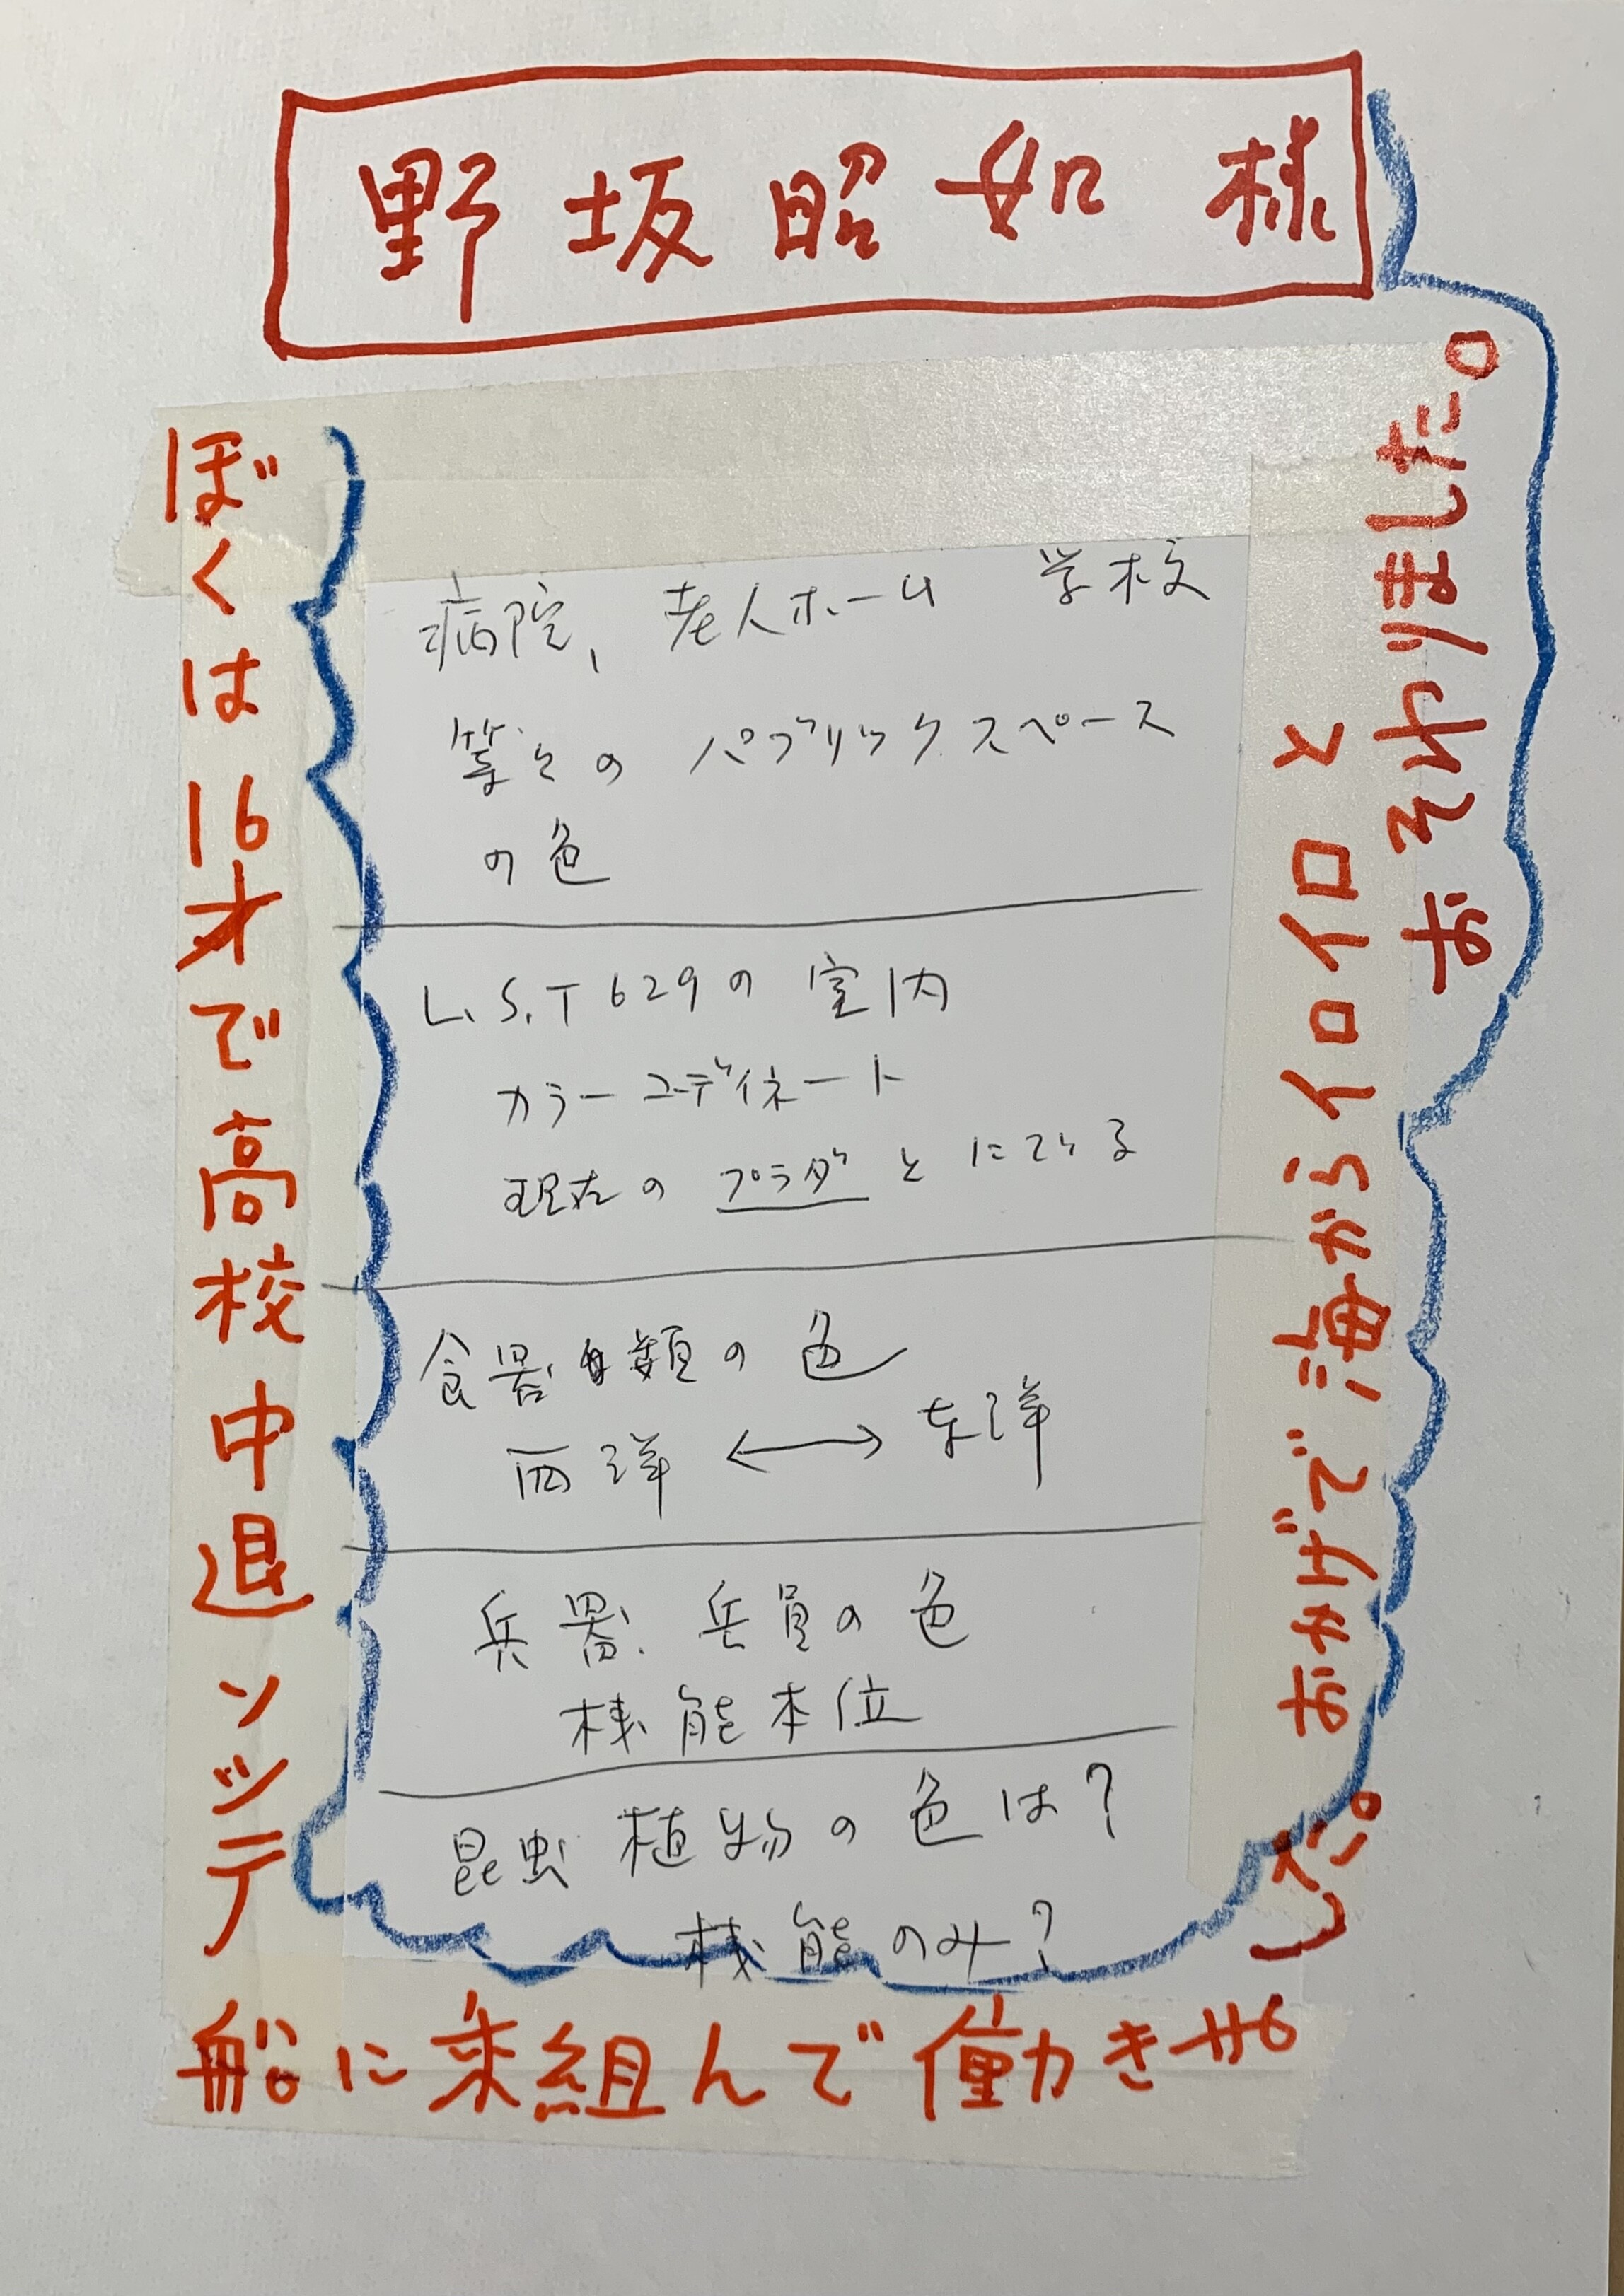 野坂昭如様
ぼくは16才で高校中退ソシテ
船に乗組んで働きせ
した。おかげで海からイロイロと
おそわりました。
病院、老人ホーム 学校
等々の パブリックスペース
の色
L.S.T 629の室内
カラーコーディネート
現在の プラダ とにている
食器類の色
西洋 ←→ 東洋
兵器、兵員の色
機能本位
昆虫 植物の色は?
機能のみ?